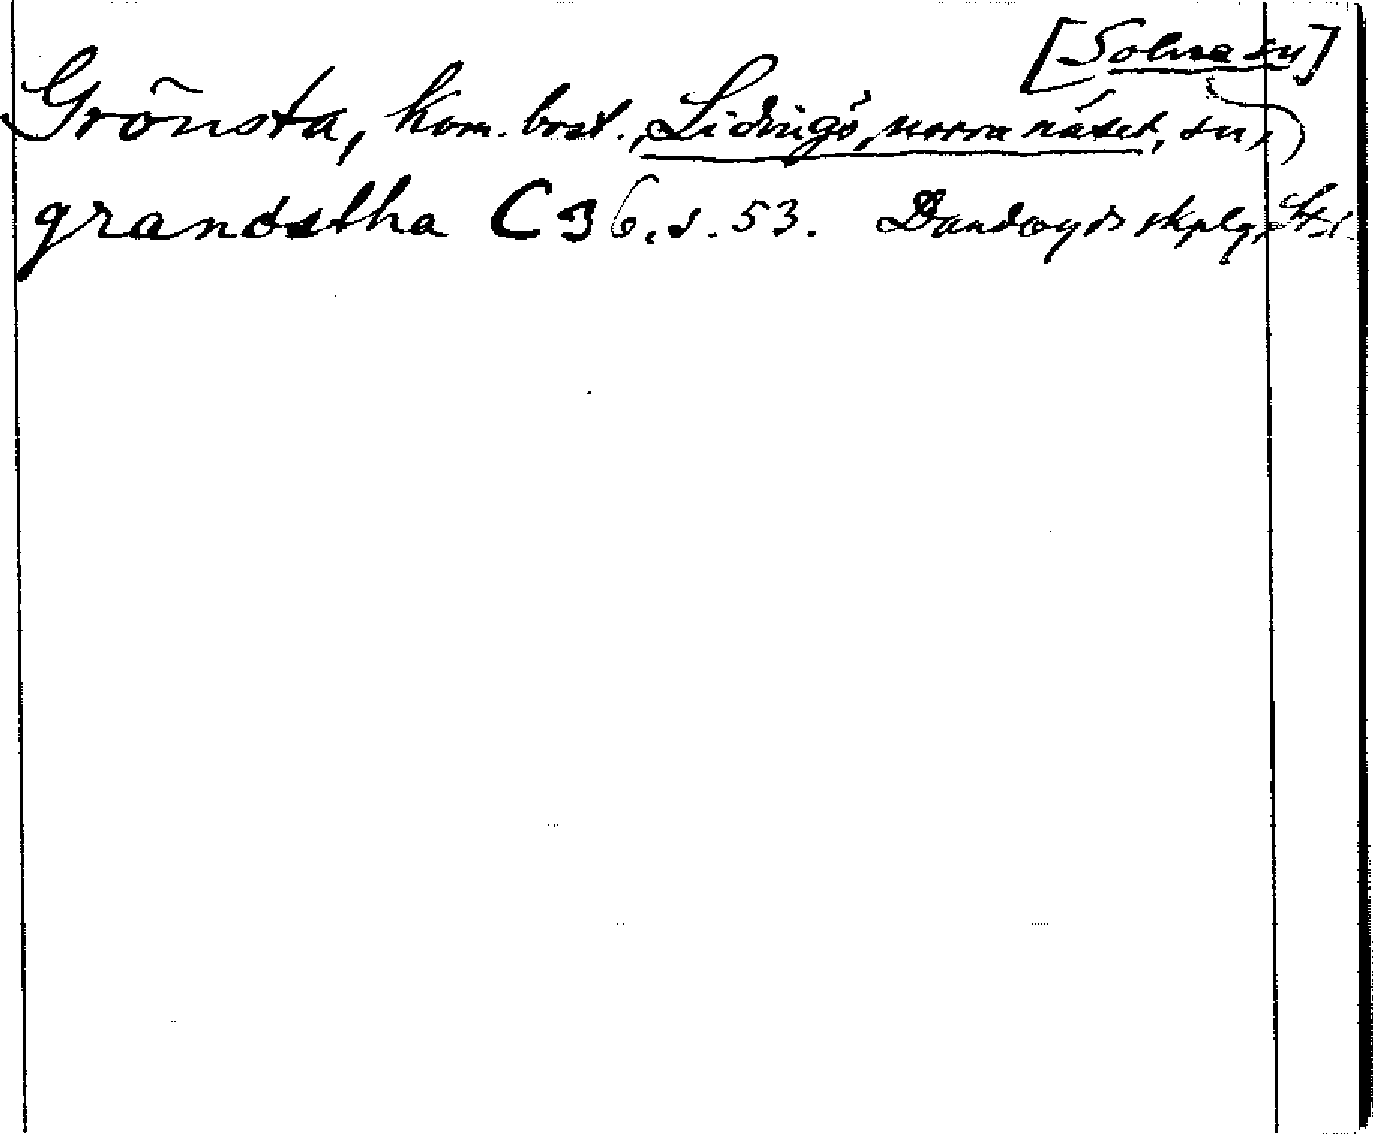 [Solna sn]
Grönsta, kom. bost., Lidingö, norra näset, sn,
grandstha C 36. s. 53. Danderyds skplg, St. l.